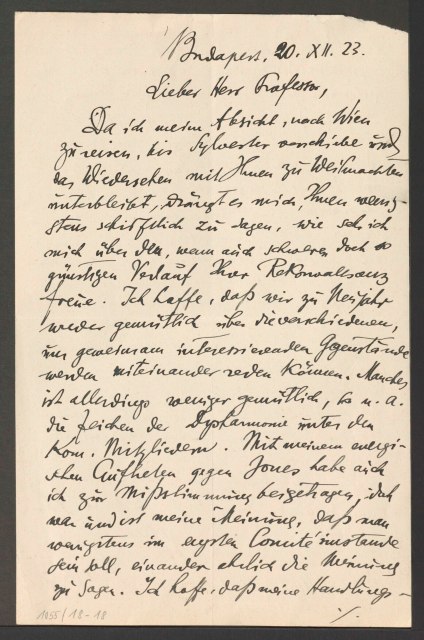 Budapest, 20. XII. 23.
Lieber Herr Professor,
Da ich meine Absicht, nach Wien
zu reisen, bis Sylvester verschiebe und
das Wiedersehen mit Ihnen zu Weihnachten
unterbleibt, drängt es mich Ihnen wenig-
stens schriftlich zu sagen, wie sehr ich
mich über den, wenn auch schweren doch so
günstigen Verlauf Ihrer Rekonvaleszenz
freue. Ich hoffe, daß wir zu Neujahr
wieder gemütlich über die verschiedenen,
uns gemeinsam interessierenden Gegenstände
werden miteinander reden können. Manches
ist allerdings weniger gemütlich, so u. a.
die Zeichen der Dysharmonie unter den
Kom. Mitgliedern. Mit meinem energi-
schen Auftreten gegen Jones habe auch
ich zur Mißstimmung beigetragen, doch
war und ist meine Meinung, daß man
wenigstens im engsten Comité imstande
sein soll, einander ehrlich die Meinung
zu sagen. Ich hoffe, daß meine Handlungs-
./.
1055/18-18